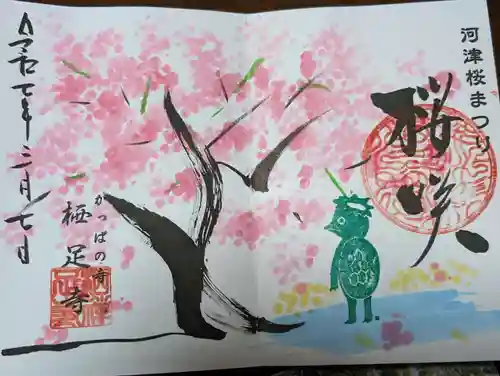 河津桜まつり
桜咲
かっぱの寺
栖足寺
令和七年